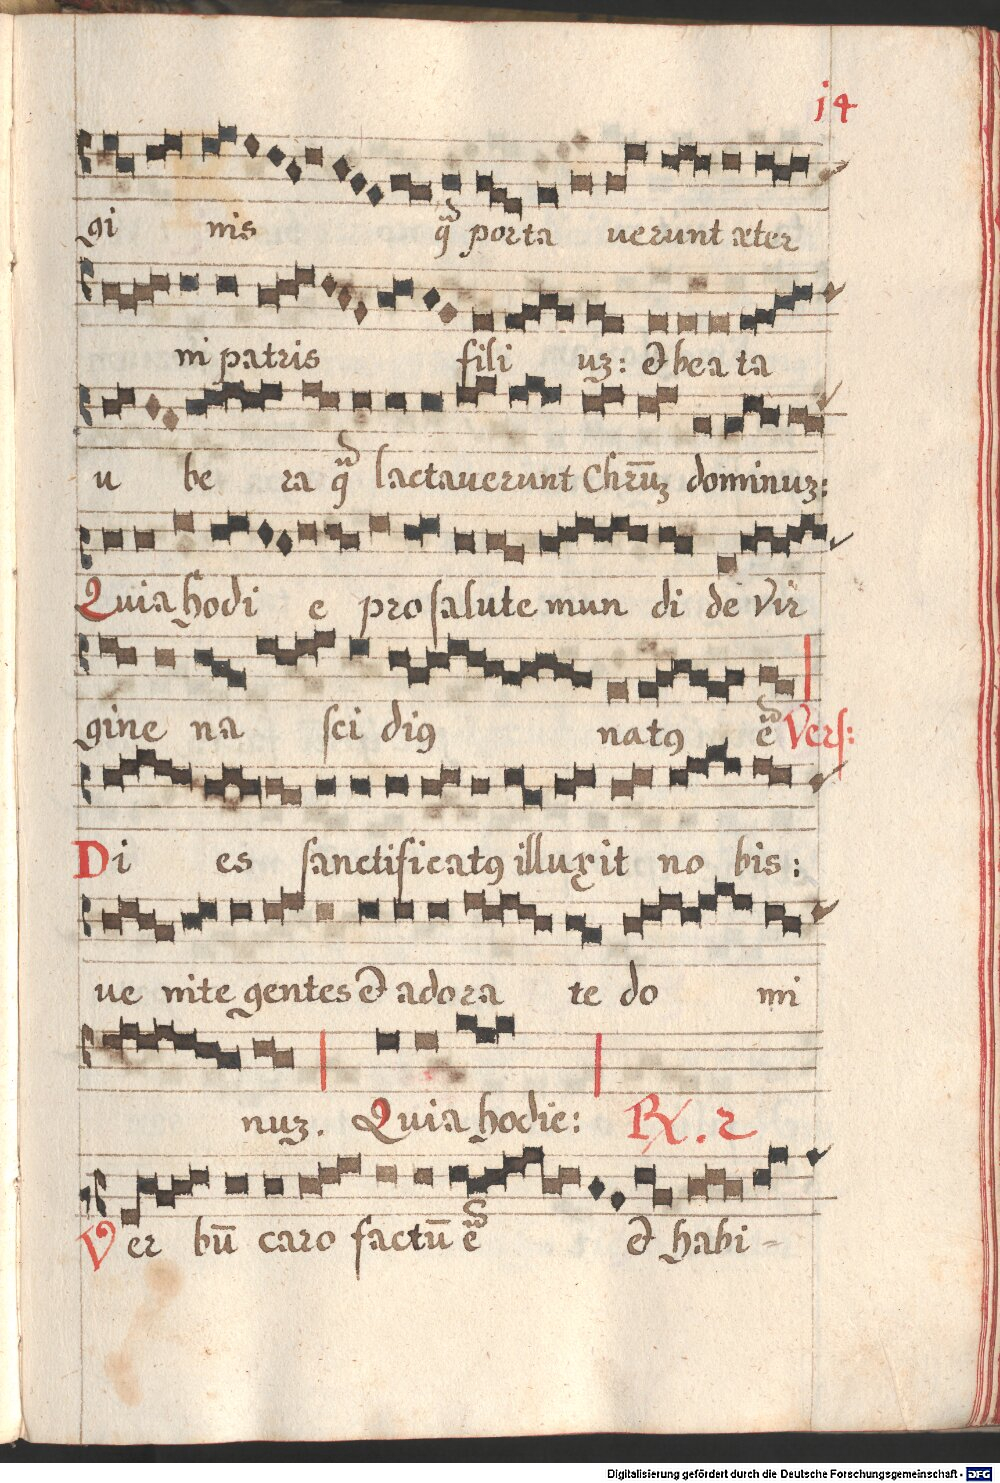 14
gi nis q̃ porta uerunt æter
ni patris fili uʒ: et bea ta
u be ra q̃ lactauerunt Chrūʒ dominuʒ:
Quia hodi e pro salute mun di de Vir
gine na sci dig9 natg9 ē Vers:
Di es sanctificatg9 illuxit no bis:
ue nite gentes et adora te do mi
nuʒ. Quia hodie: R. 2
Ver bū caro factū ē et habi-
Digitalisierung gefördert durch die Deutsche Forschungsgemeinschaft - DFG